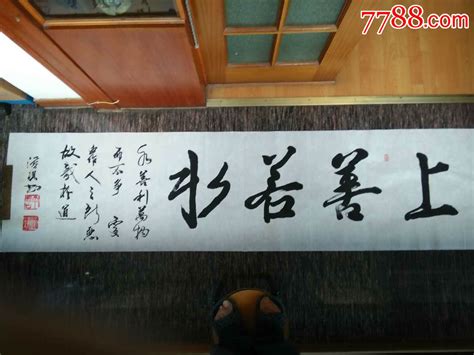 7788.com
上善若水
水善利萬物
而不争處
眾人之所惡
故幾於道